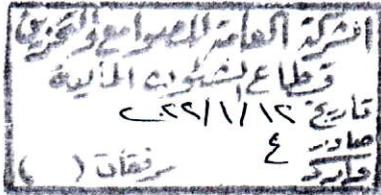 الشركة العامة للصوامع والتخزين
قطاع الشئون المالية
تاريخ ١٢/١/٢٠٢٢
صادر ٤
وارد مرفقات ( )